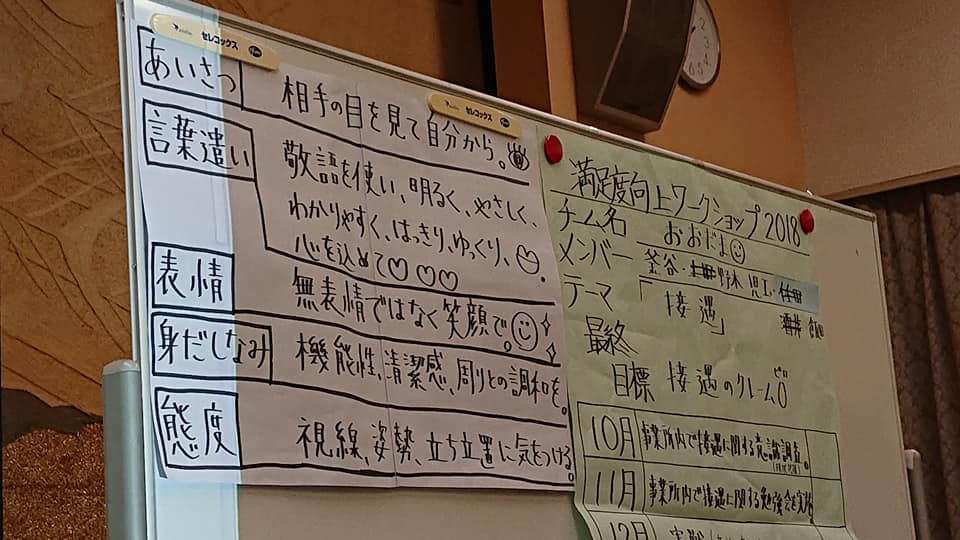 セレコックス
セレコックス
あいさつ
相手の目を見て自分から。
言葉遣い
敬語を使い、明るく、やさしく、
わかりやすく、はっきり、ゆっくり、
心を込めて♡♡♡
表情
無表情ではなく笑顔で。
身だしなみ
機能性、清潔感、周りとの調和を。
態度
視線、姿勢、立ち位置に気をつける。
満足度向上ワークショップ2018
チーム名 おおだま
メンバー 釜谷・
テーマ 「接遇」
最終
目標 接遇のクレーム0
10月 事業所内で接遇に関する意識調査。
11月 事業所内で接遇に関する勉強会を実施
12月